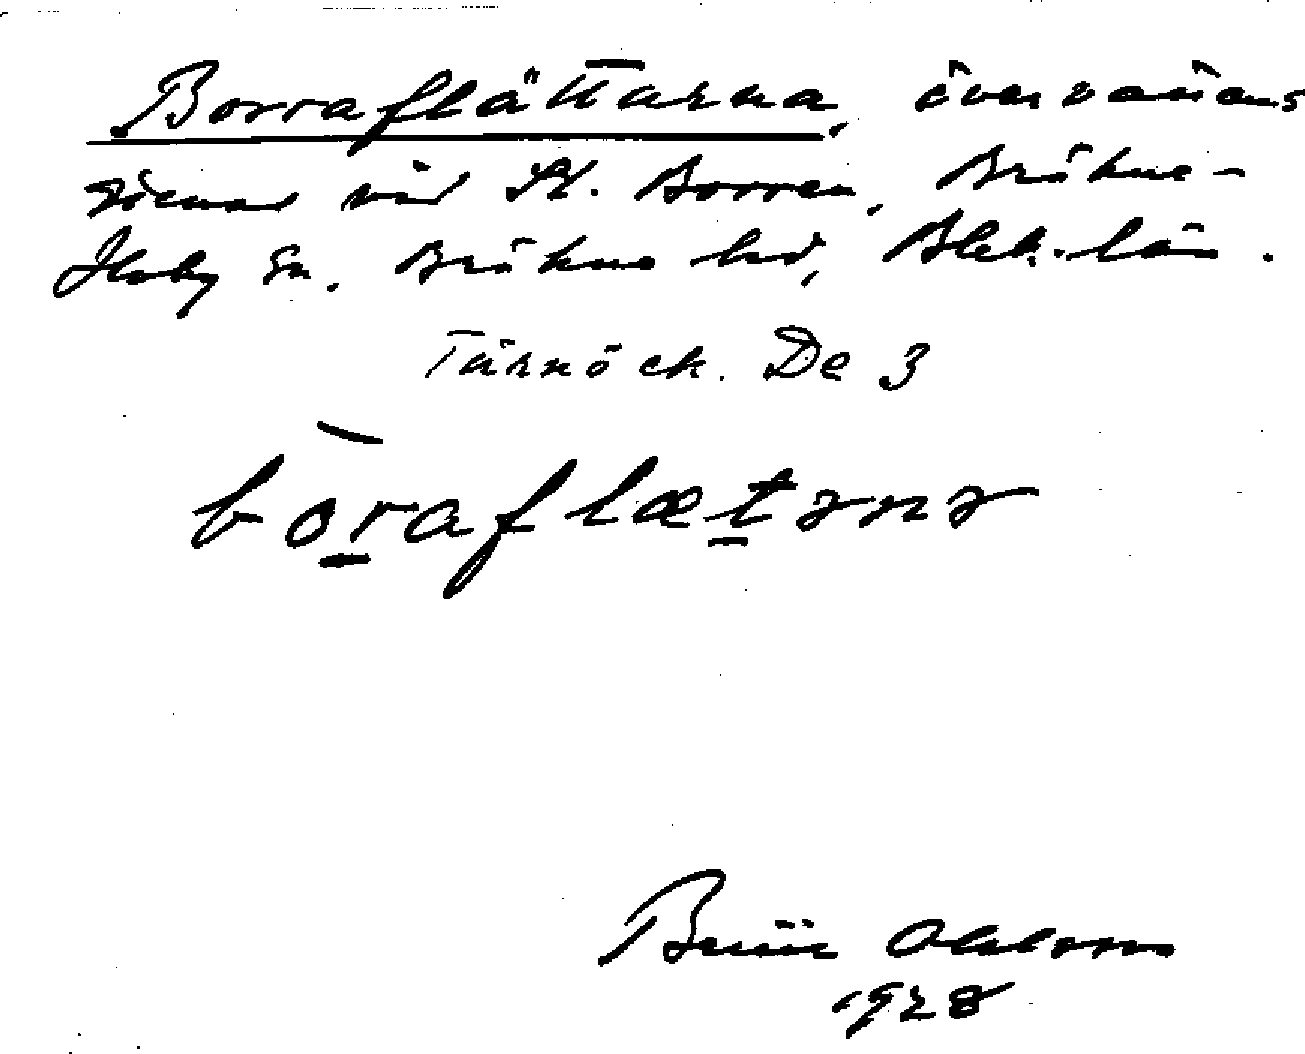 Borraflättarna, översvämms
ziemar vid St. Borren, Bräkne-
Hoby sn. Bräkne hd, Blek. län.
Tärnö ek. De 3
bòraflætənə
Ohlsson
1928